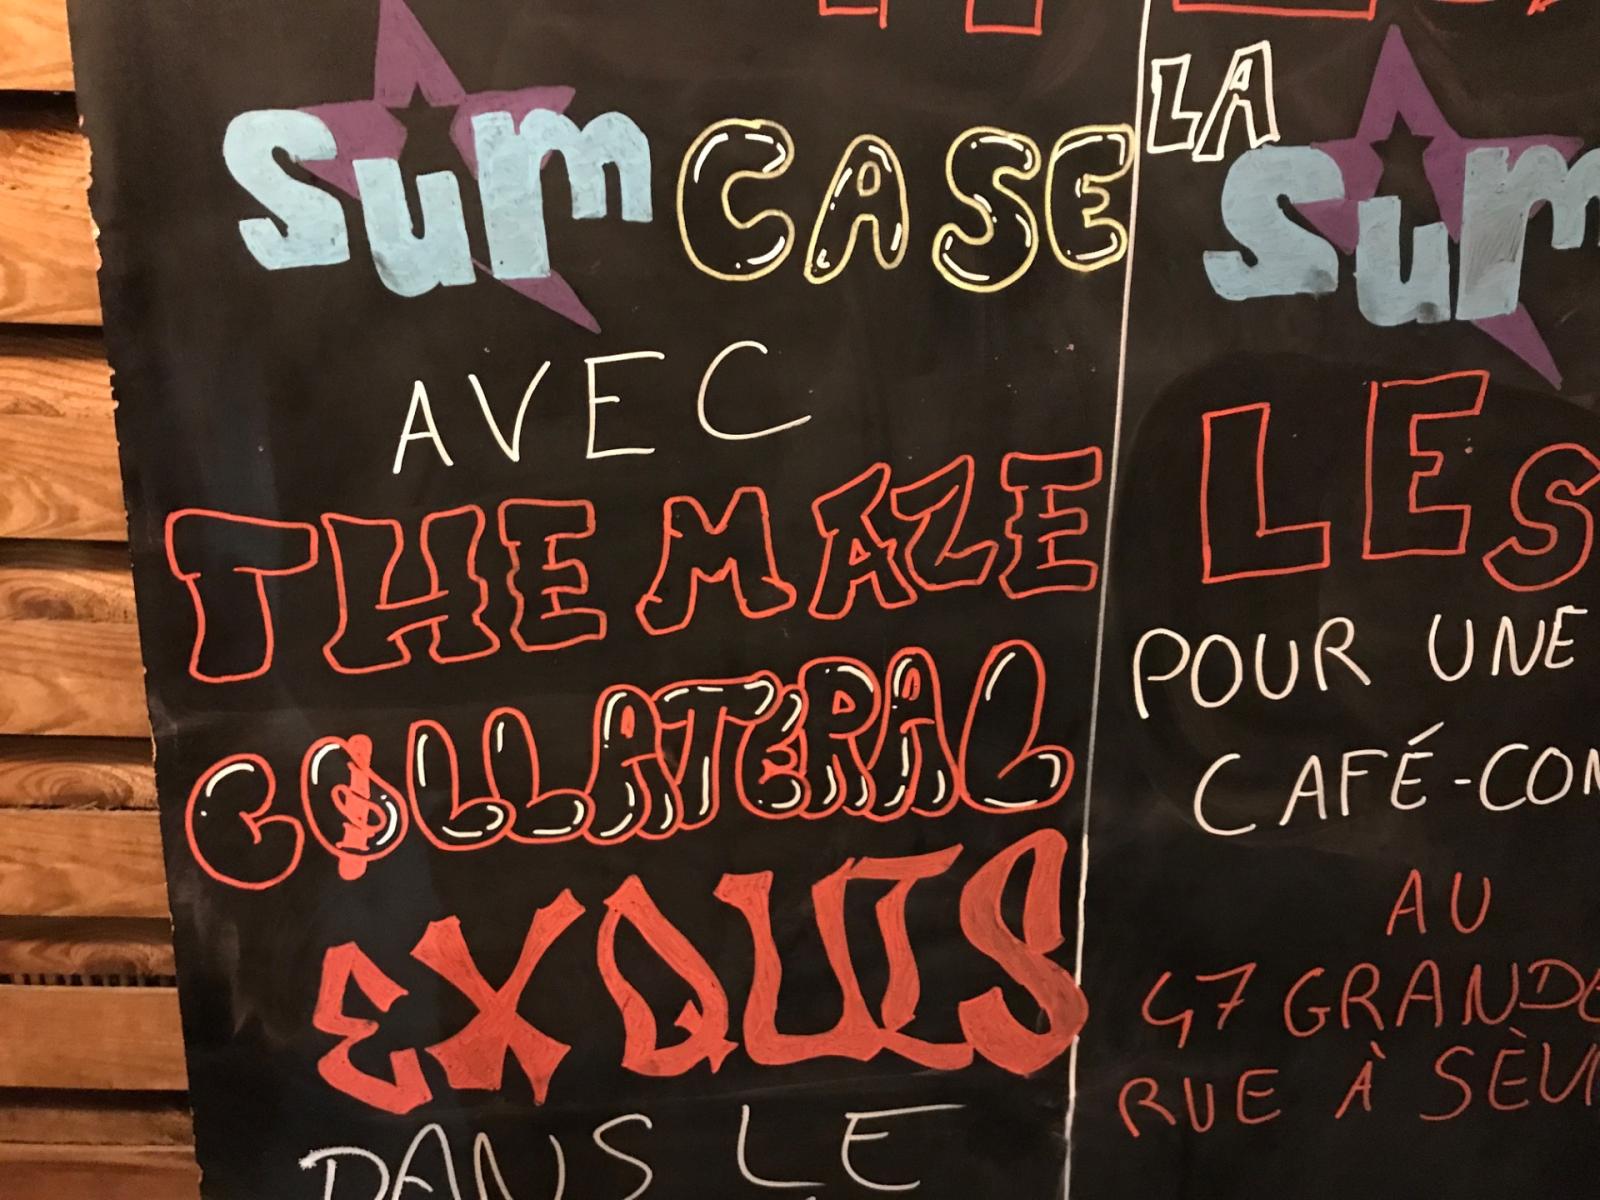 Sum CASE
AVEC
THE MAZE
COLLATERAL
EXQUIS
DANS LE
LA
Sum
LES
POUR UNE
CAFÉ-CON
AU
47 GRANDE
RUE À SÈV